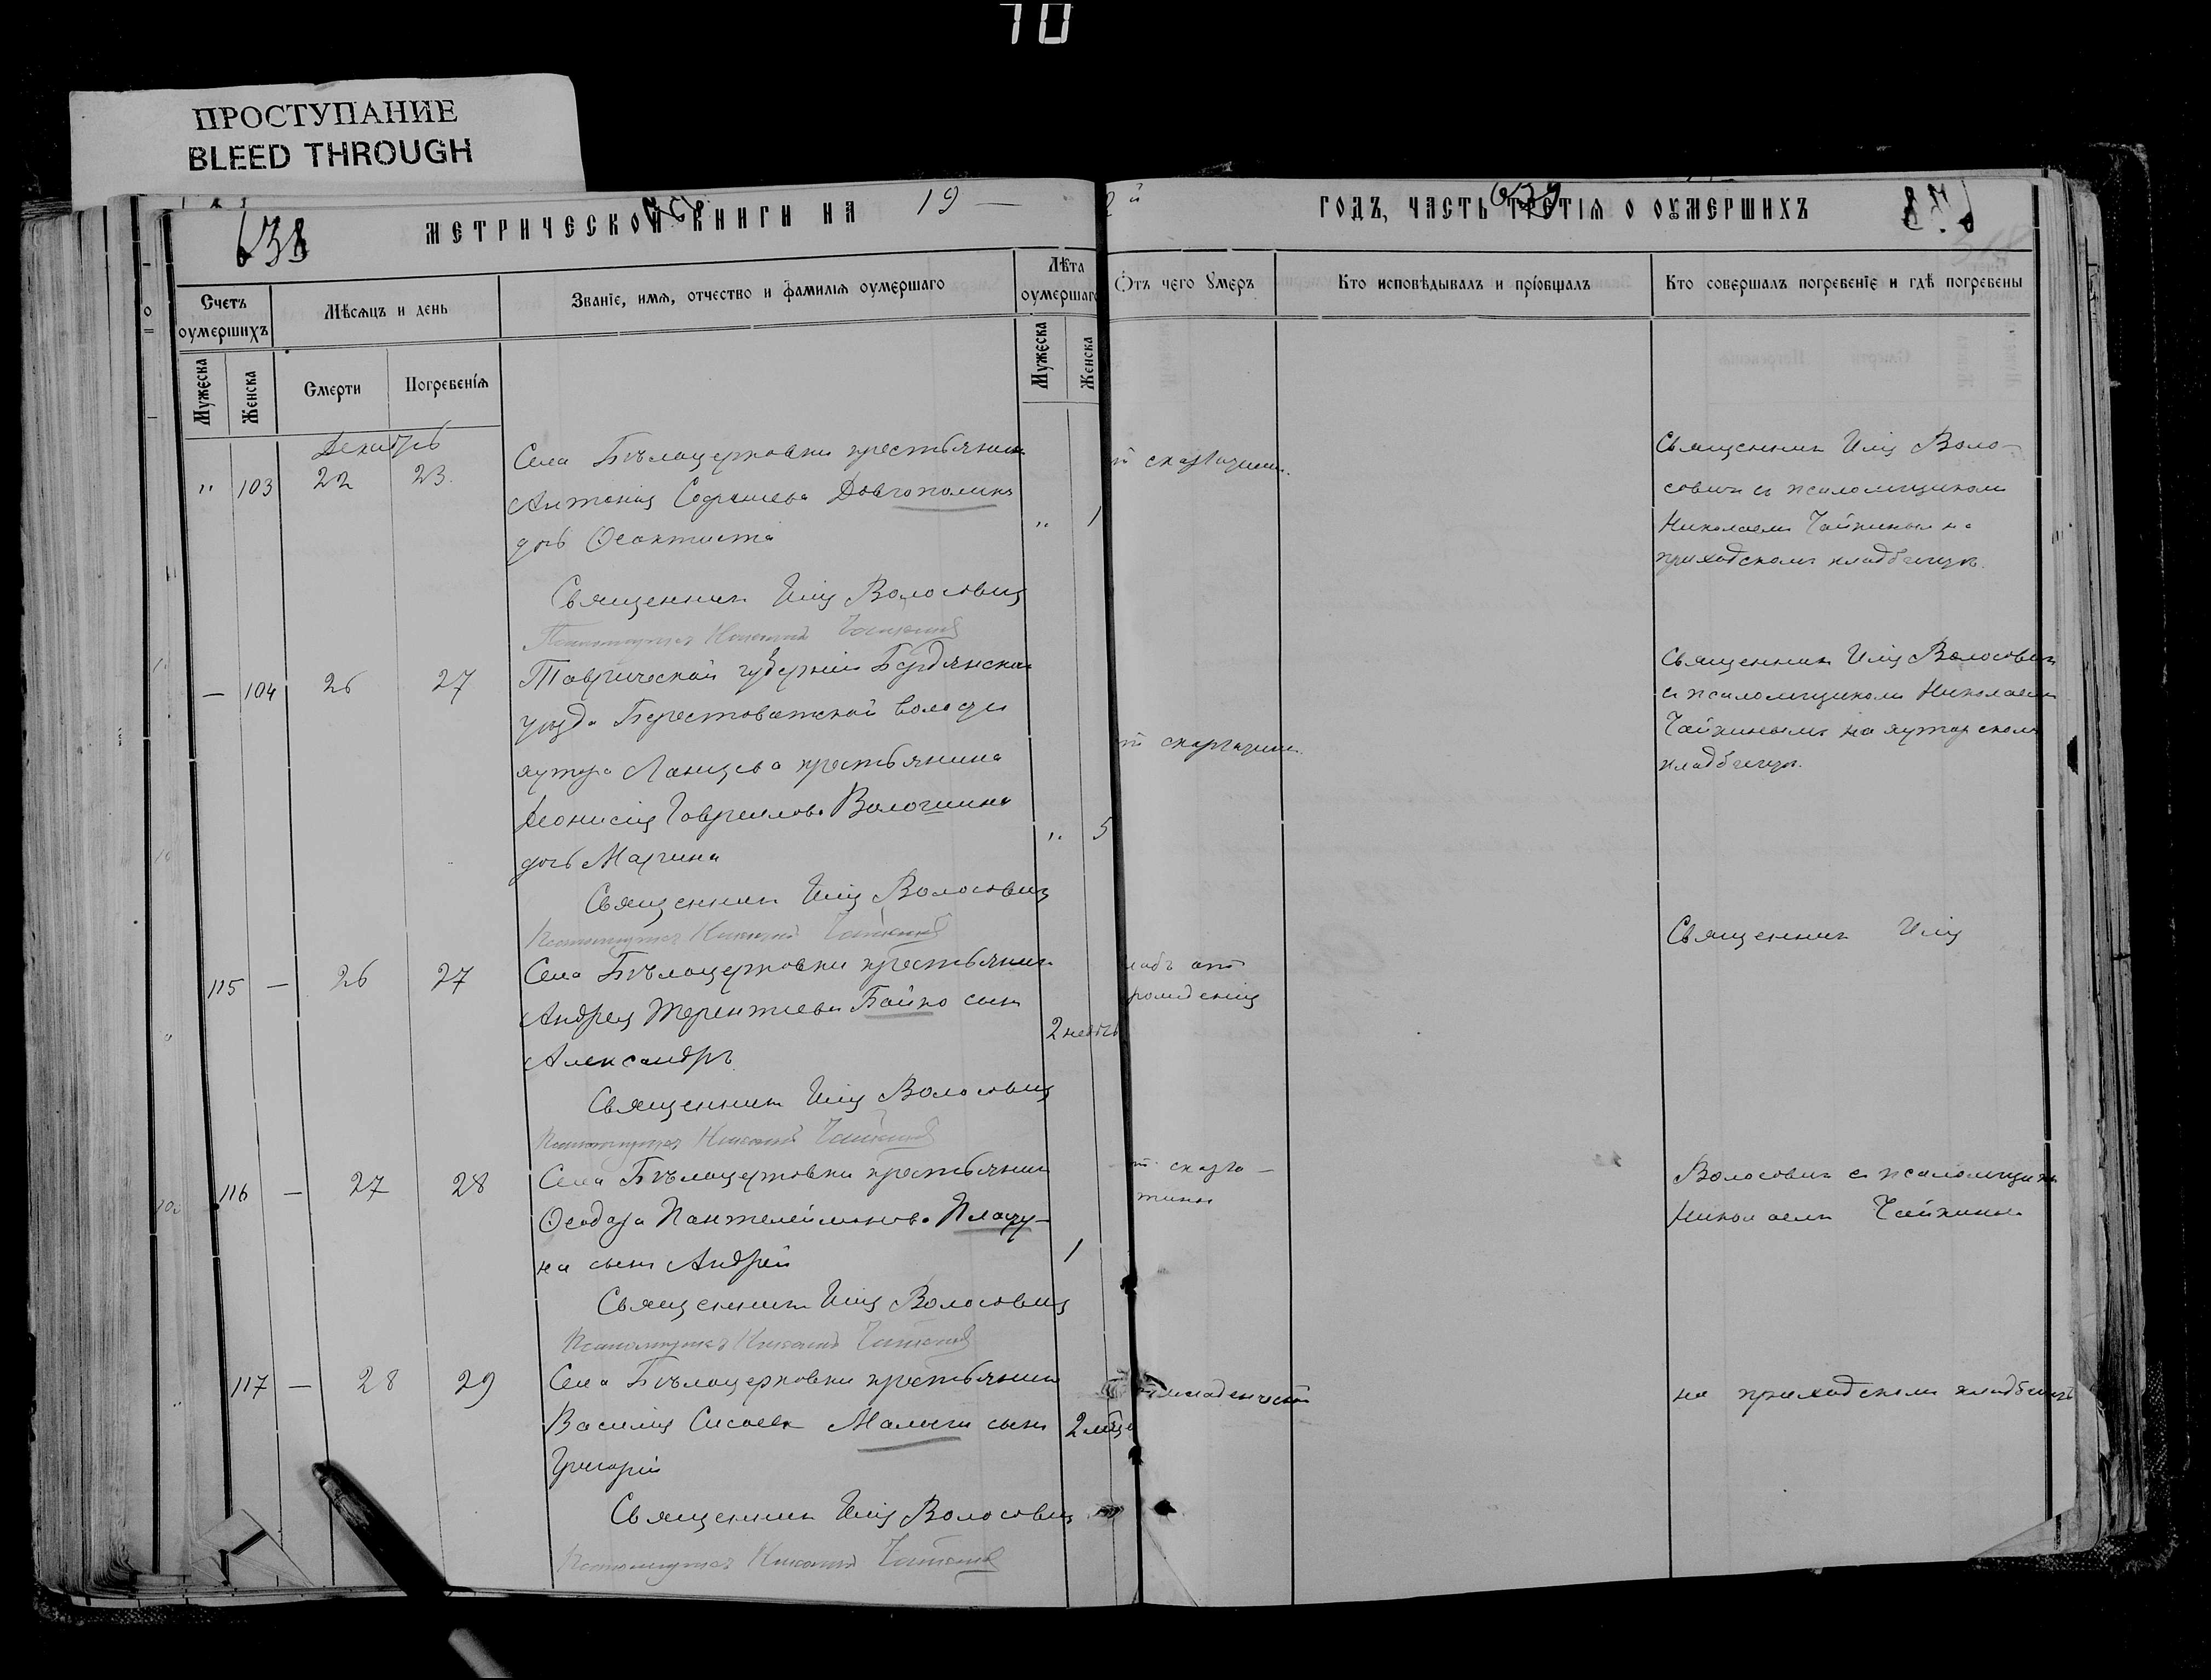 10
ПРОСТУПАНИЕ
BLEED THROUGH
638
МЕТРИЧЕСКОЙ КНИГИ НА 19 — 2й ГОДЪ, ЧАСТЬ ТРЕТІЯ О ОУМЕРШИХЪ
639
Счетъ оумершихъ
Мѣсяцъ и день
Званіе, имя, отчество и фамилія оумершаго
Лѣта оумершаго
Отъ чего умеръ
Кто исповѣдывалъ и пріобщалъ
Кто совершалъ погребеніе и гдѣ погребены
Мужеска
Женска
Смерти
Погребенія
Мужеска
Женска
Декабрь
" 103 22 23
Села Бѣлоцерковки крестьянина
Антонія Софроніева Довгополика
дочь Феоктиста
" 1
скарлатины
Священник Илія Воло-
совичъ съ псаломщикомъ
Николаемъ Чайкинымъ на
приходскомъ кладбищѣ.
Священникъ Илія Волосовичъ
Псаломщикъ Николай Чайкинъ
— 104 26 27
Таврической губерніи Бердянскаго
уѣзда Берестоватской волости
хутора Ланцева крестьянина
Діонисія Гавриилова Волошина
дочь Марина
" 5
скарлатины
Священникъ Илія Волосовичъ
съ псаломщикомъ Николаемъ
Чайкинымъ на хуторскомъ
кладбищѣ.
Священникъ Илія Волосовичъ
Псаломщикъ Николай Чайкинъ
115 — 26 27
Села Бѣлоцерковки крестьянина
Андрея Терентіева Бойко сынъ
Александръ
2 недѣль
слабъ отъ
рожденія
Священникъ Илія
Священникъ Илія Волосовичъ
Псаломщикъ Николай Чайкинъ
116 — 27 28
Села Бѣлоцерковки крестьянина
Феодора Пантелеймонова Плаху-
на сынъ Андрей
1
скарла-
тины
Волосовичъ съ псаломщикомъ
Николаемъ Чайкинымъ
Священникъ Илія Волосовичъ
Псаломщикъ Николай Чайкинъ
117 — 28 29
Села Бѣлоцерковки крестьянина
Василія Сисоева Малыги сынъ
Григорій
2 мѣся
младенческой
на приходскомъ кладбищѣ
Священникъ Илія Волосовичъ
Псаломщикъ Николай Чайкинъ